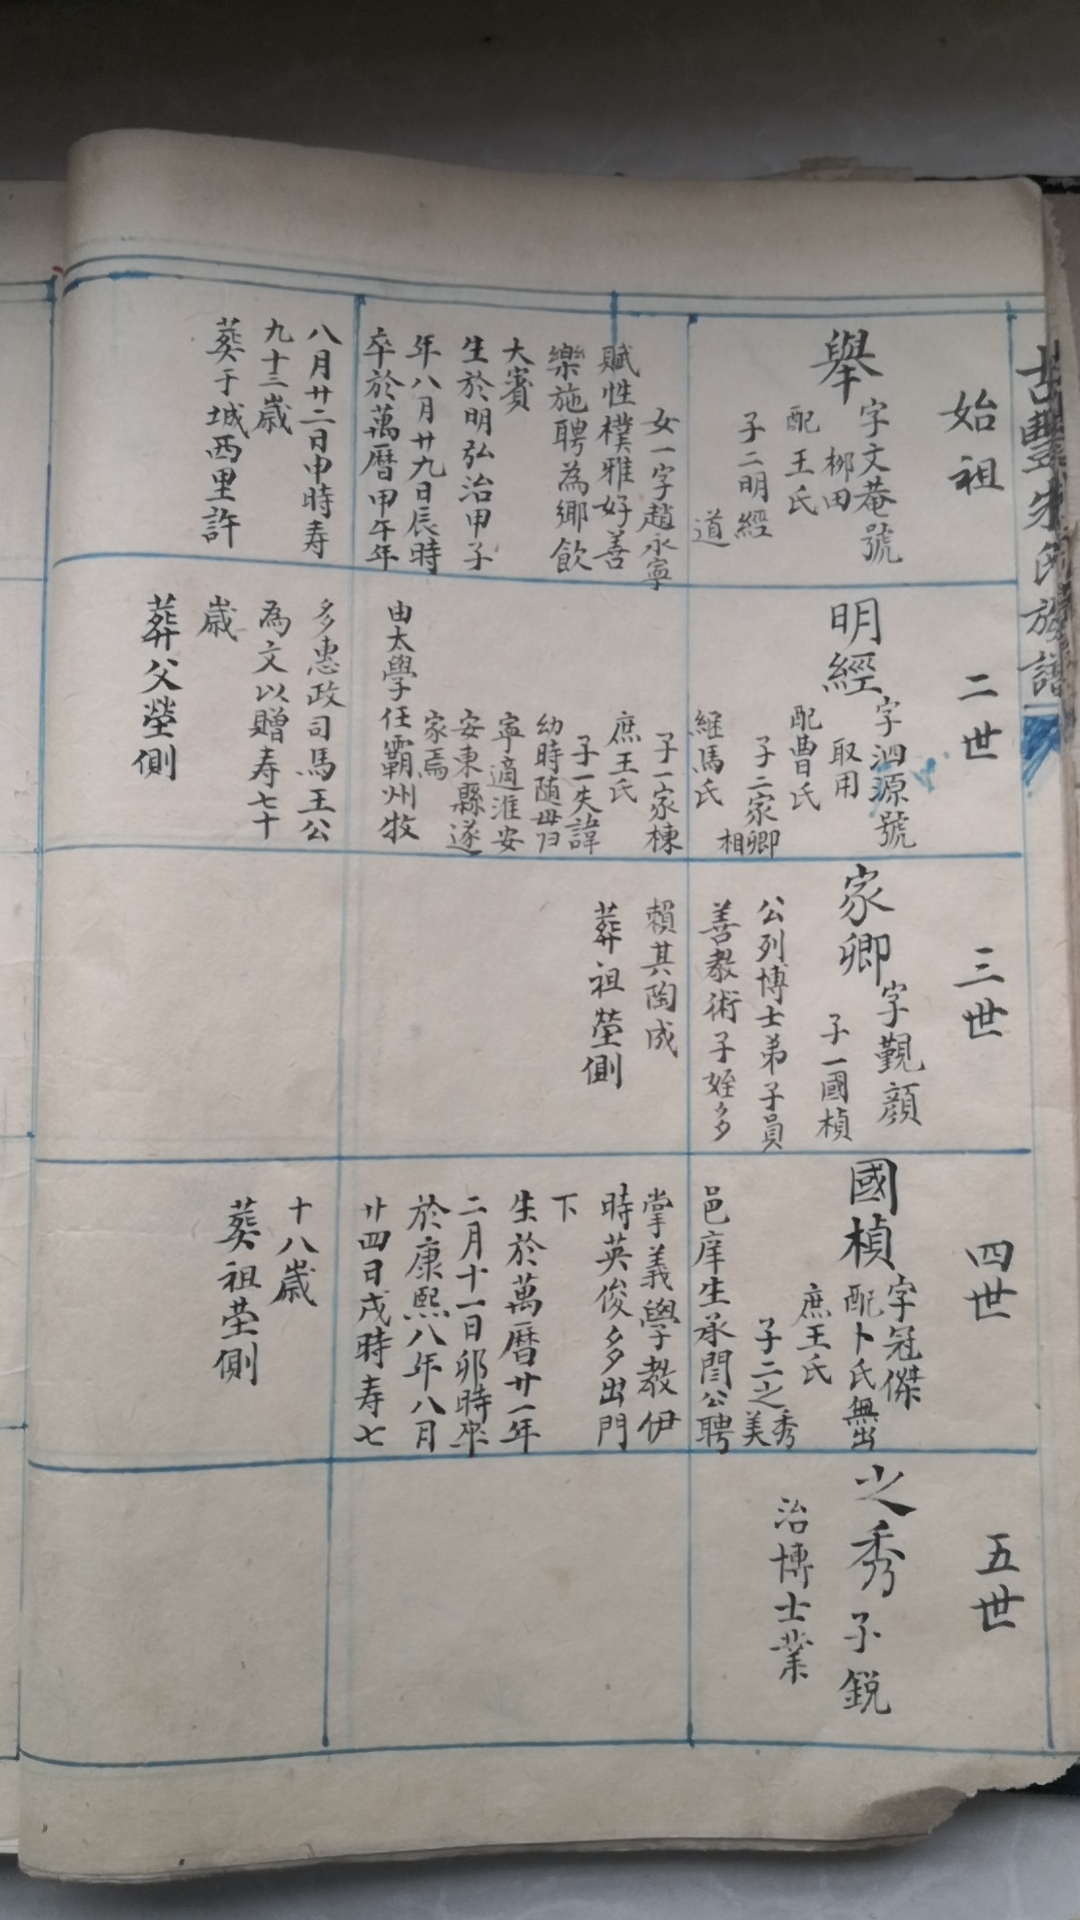 豐朱氏族譜
始祖
舉
字文菴號
柳田
配王氏
子二明經
道
女一字趙永寧
賦性樸雅好善
樂施聘為鄉飲
大賓
生於明弘治甲子
年八月廿九日辰時
卒於萬曆甲午年
八月廿二日申時寿
九十三歲
葬于城西里許
二世
明經
字泗源號
取用
配曹氏
子二家卿
相
継馬氏
子一家棟
庶王氏
子一失諱
幼時随母归
寧適淮安
安東縣遂
家焉
由太學任霸州牧
多惠政司馬王公
為文以贈寿七十
歲
葬父塋側
三世
家卿
字覲顔
子一國楨
公列博士弟子員
善教術子姪多
賴其陶成
葬祖塋側
四世
國楨
字冠傑
配卜氏無出
庶王氏
子二之秀
美
邑庠生承閆公聘
掌義學教伊
時英俊多出門
下
生於萬曆廿一年
二月十一日卯時卒
於康熙八年八月
廿四日戌時寿七
十八歲
葬祖塋側
五世
之秀
子銳
治博士業